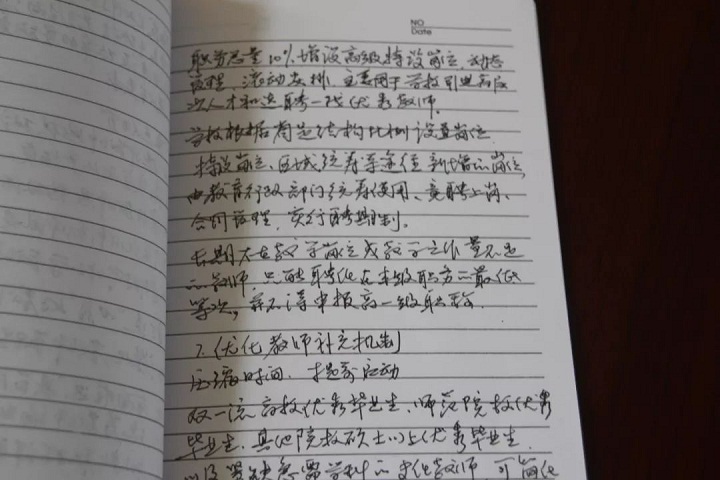 NO.
Date
职务总量10%增设高级特设岗位 动态
管理、流动安排,主要用于学校引进高层
次人才和选聘一批优秀教师。
学校根据有关结构比例设置岗位
特设岗位、区域统筹等途径新增的岗位,
由教育行政部门统筹使用、竞聘上岗、
合同管理、实行聘期制。
长期不在教学岗位或教学工作量不足
的教师,只能聘任在本级职务的最低
等次,并不得申报高一级职称.
7.优化教师补充机制
压缩时间、提前启动
双一流高校优秀毕业生、师范院校优秀
毕业生、其他院校硕士以上优秀毕业生
以及紧缺急需学科的 教师,可简化